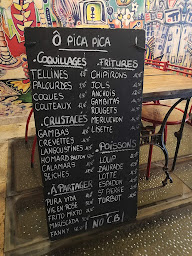 Ô PICA PICA
.COQUILLAGES
TELLINES
PALOURDES
COQUES
COUTEAUX
.CRUSTACES
GAMBAS
CREVETTES
LANGOUSTINES
HOMARD
CALAMARS
SEICHES
.A PARTAGER
PURA VIDA
VIE EN ROSE
FRITO MIXTO
MARISCADA
FANNY
.FRITURES
CHIPIRONS
JOLS
ANCHOIS
GAMBITAS
ROUGETS
MERLUCHON
LISETTE
.POISSONS
LOUP
DAURADE
LOTTE
ESPADON
ST PIERRE
TURBOT
NO CB!